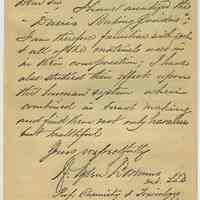 Dear Sir I have analyzed this
"Davis's Baking Powders".
I am therefore familiar with each
& all of the materials used in
in their composition, I have
also studied their effect upon
the human system when
combined in bread making
and find them not only harmless
but healthful
Yours respectfully
M.D. LLD
Prof. Chemistry & Toxicology